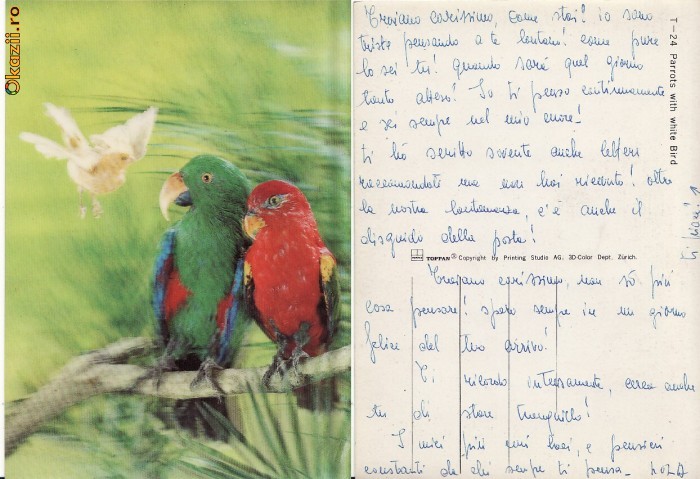 Okazii.ro
Troiano carissimo, come stai! io sono
triste pensando a te lontano! come pure
lo sei tu! quando sarà quel giorno
tanto atteso! Io ti penso continuamente
e sei sempre nel mio cuore!
ti ho scritto sovente anche lettere
raccomandate ma non hai ricevuto! oltre
la nostra lontananza, c'è anche il
disguido della posta!
T-24 Parrots with white Bird
TOPPAN® Copyright by Printing Studio AG, 3D-Color Dept. Zürich.
Troiano carissimo, non so più
cosa pensare! spero sempre in un giorno
felice del tuo arrivo!
Ti ricordo intensamente, cerca anche
tu di stare tranquillo!
I miei più cari baci, e pensieri
costanti da chi sempre ti pensa